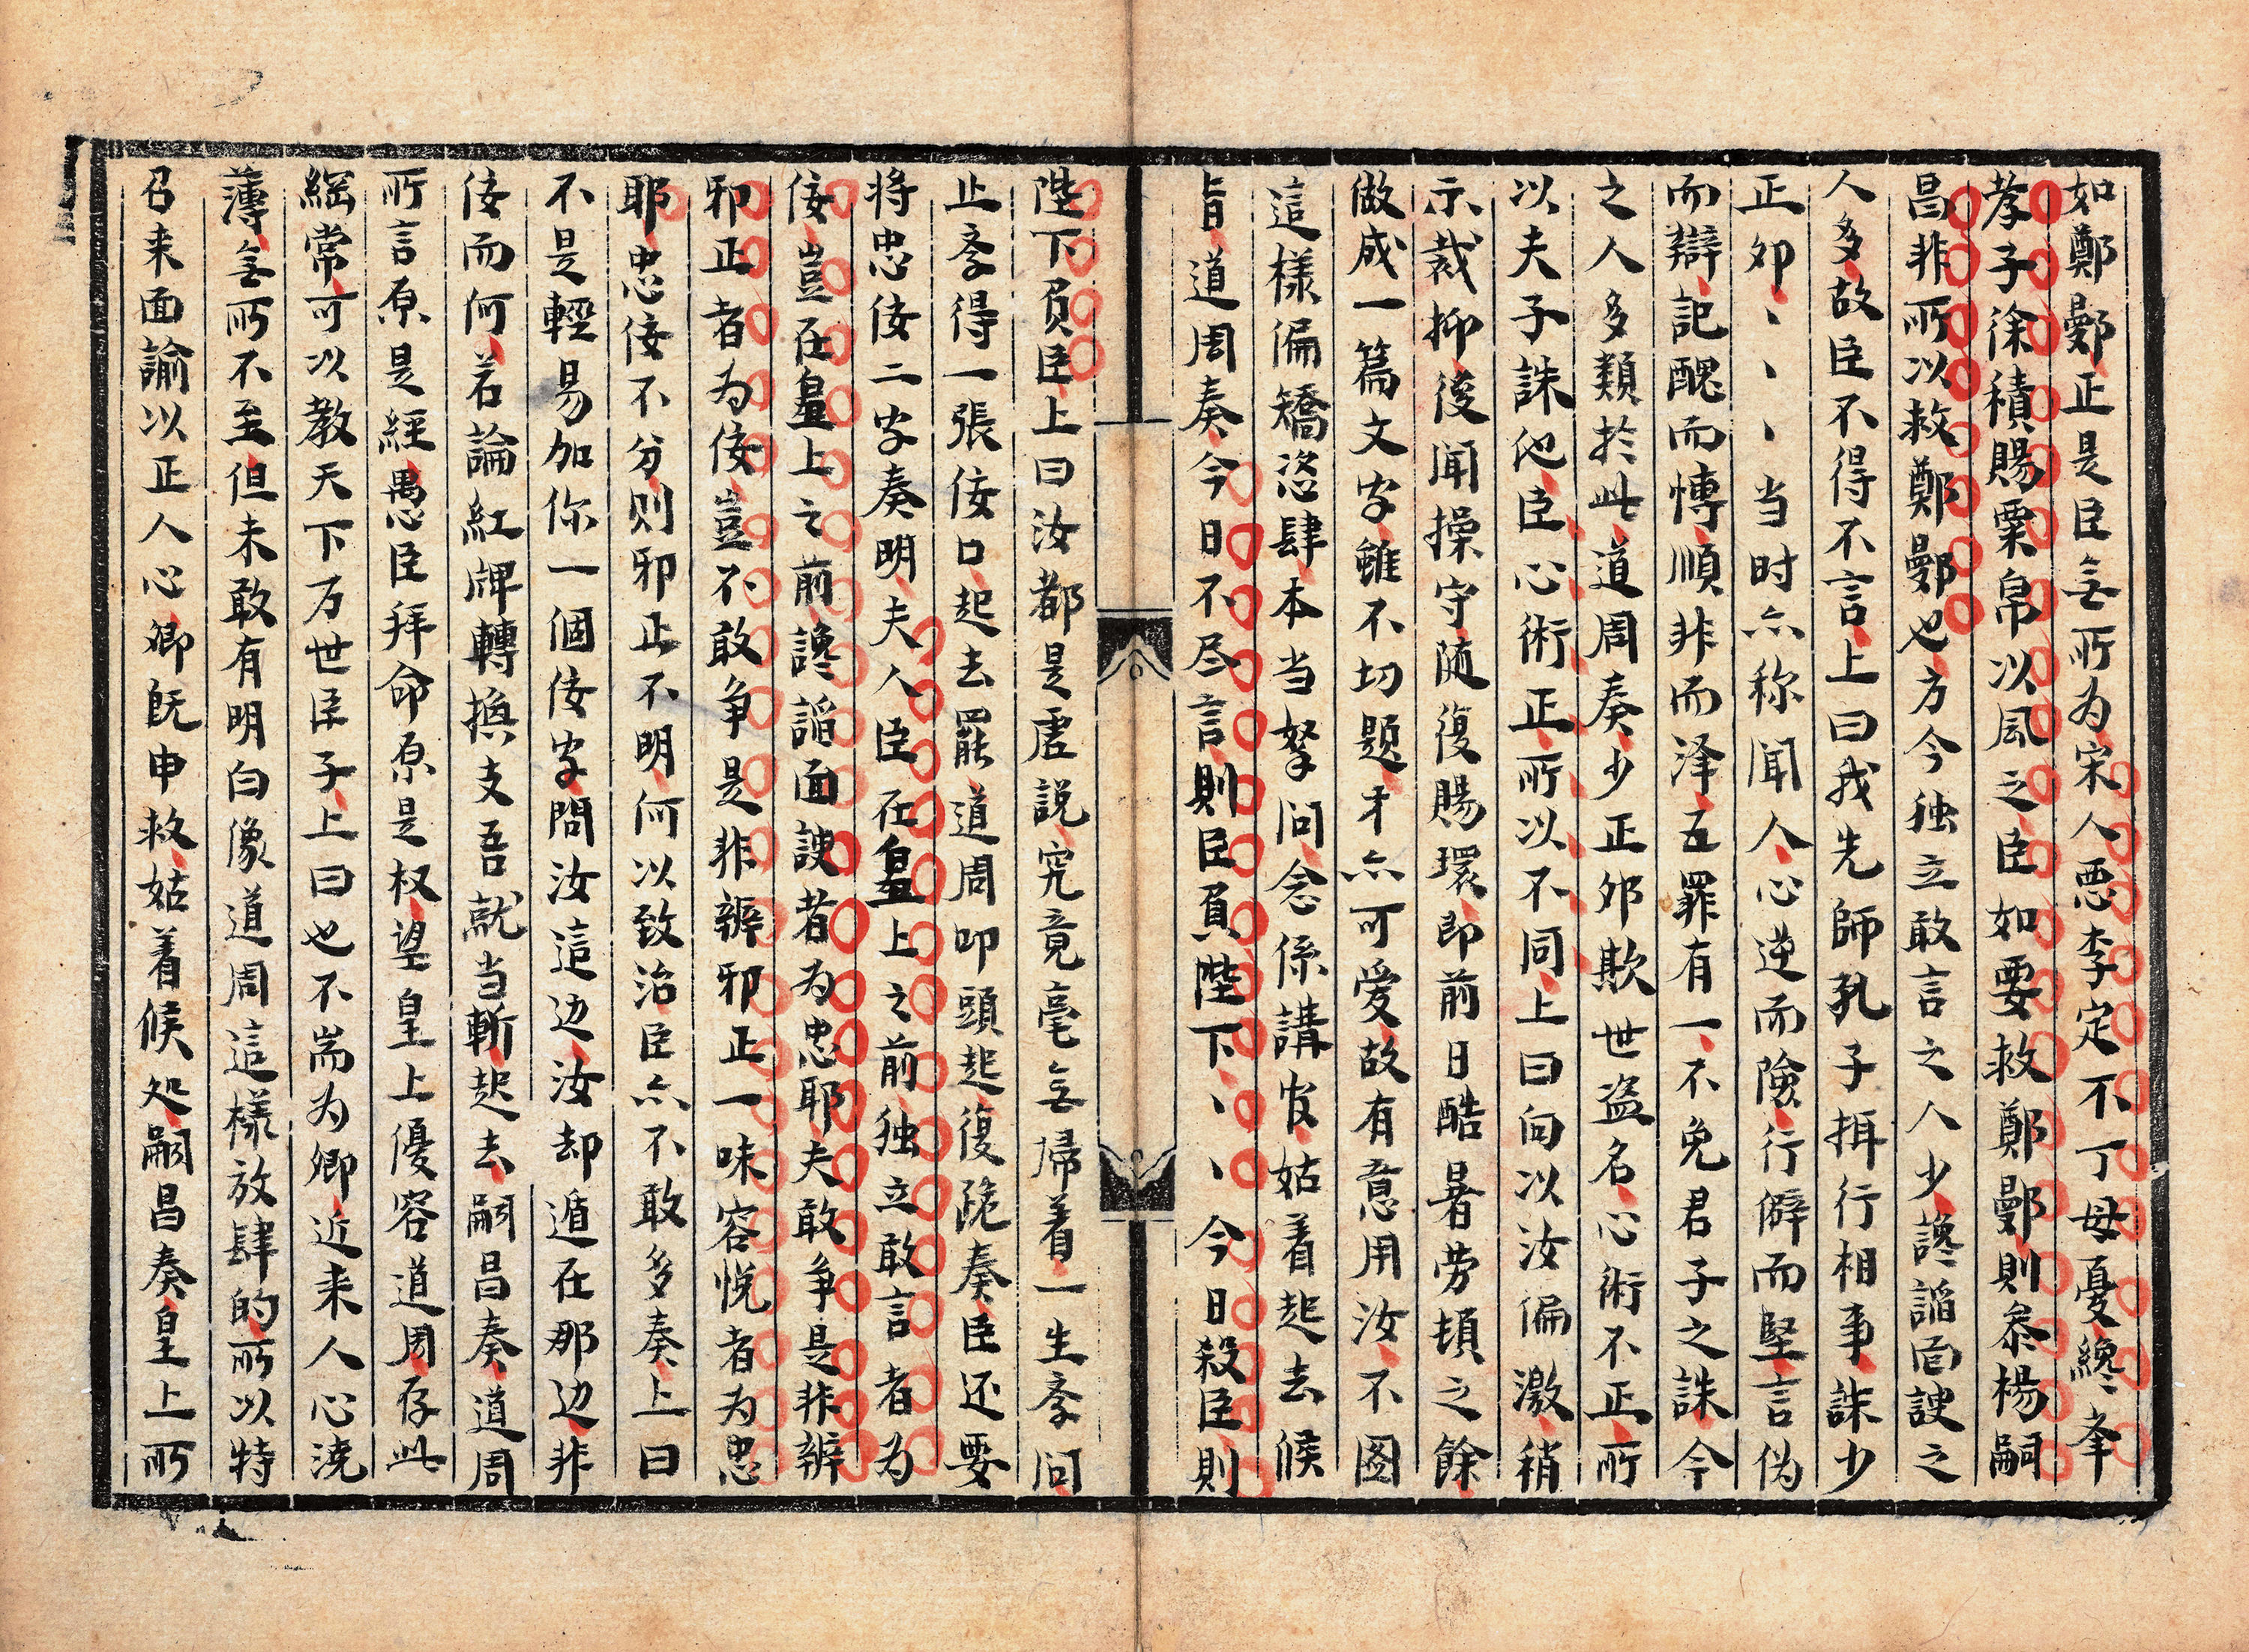 如鄭鄤正是臣無所为宋人悪李定不丁母憂纔李
孝子徐積賜粟帛以風之臣如要救鄭鄤則叅楊嗣
昌非所以救鄭鄤也方今独立敢言之人少讒諂面諛之
人多故臣不得不言上曰我先師孔子揖行相事誅少
正夘、、、当时亦称聞人心逆而險行僻而堅言伪
而辯記醜而愽順非而泽五罪有一不免君子之誅今
之人多類於此道周奏少正夘欺世盗名心術不正所
以夫子誅他臣心術正所以不同上曰向以汝偏激稍
示裁抑後聞操守随復賜環即前日酷暑劳頓之餘
做成一篇文字雖不切題才亦可愛故有意用汝不图
這樣偏矯恣肆本当拏问念係講官姑着起去候
旨道周奏今日不尽言則臣負陛下、、今日殺臣則
陛下負臣上曰汝都是虚説究竟毫無帰着一生李问
止孝得一張佞口起去罷道周叩頭起復跪奏臣还要
将忠佞二字奏明夫人臣在皇上之前独立敢言者为
佞豈在皇上之前讒諂面諛者为忠耶夫敢争是非辨
邪正者为佞豈不敢争是非辨邪正一味容悦者为忠
耶忠佞不分则邪正不明何以致治臣亦不敢多奏上曰
不是輕易加你一個佞字問汝這边汝却遁在那边非
佞而何若論紅牌轉換支吾就当斬起去嗣昌奏道周
所言原是經愚臣拜命原是权望皇上優容道周存此
綱常可以教天下万世臣子上曰也不耑为卿近来人心澆
薄無所不至但未敢有明白像道周這樣放肆的所以特
召来面諭以正人心卿既申救姑着候处嗣昌奏皇上所